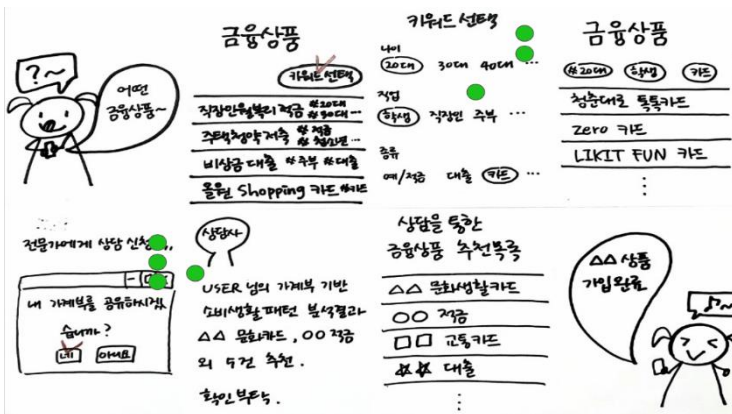 ?~
어떤
금융상품~
금융상품
키워드선택
직장인월복리적금 #20대 #30대 ...
주택청약저축 #적금 #청소년 ...
비상금대출 #주부 #대출
올원 Shopping 카드 #카드
키워드 선택
나이
20대 30대 40대 ...
직업
학생 직장인 주부 ...
종류
예/적금 대출 카드 ...
금융상품
#20대 학생 카드
청춘대로 톡톡카드
Zero 카드
LIKIT FUN 카드
⋮
전문가에게 상담 신청
내 가계부를 공유하시겠
습니까?
네 아니요
상담사
USER 님의 가계부 기반
소비생활패턴 분석결과
△△ 문화카드, ○○ 적금
외 5건 추천.
확인부탁.
상담을 통한
금융상품 추천목록
△△ 문화생활카드
○○ 적금
□□ 교통카드
☆☆ 대출
⋮
△△ 상품
가입완료
♪~